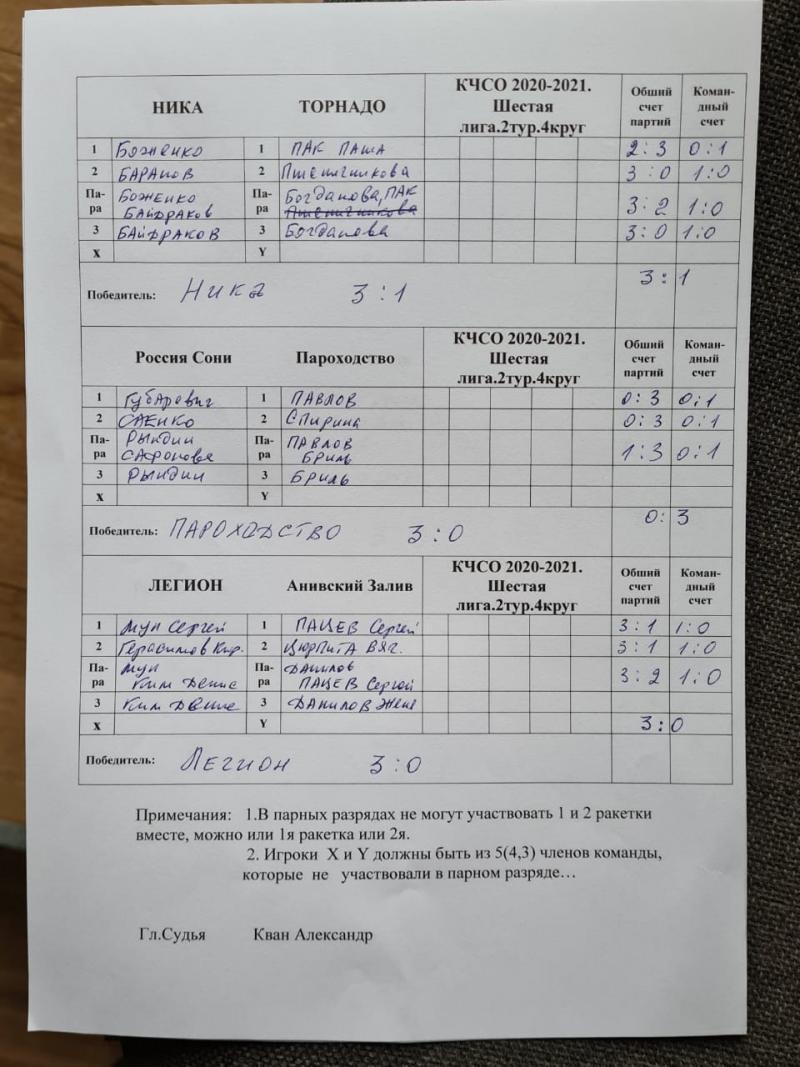 НИКА ТОРНАДО КЧСО 2020-2021. Шестая лига.2тур.4круг Обший счет партий Коман-дный счет
1 Боженко 1 ПАК ПАША 2:3 0:1
2 БАРАНОВ 2 Пшеничникова 3:0 1:0
Па-ра БОЖЕНКО БАЙДРАКОВ Па-ра Богданова, ПАК Пшеничникова 3:2 1:0
3 БАЙДРАКОВ 3 Богданова 3:0 1:0
X Y
Победитель: НИКА 3:1 3:1
Россия Сони Пароходство КЧСО 2020-2021. Шестая лига.2тур.4круг Обший счет партий Коман-дный счет
1 Губаревич 1 ПАВЛОВ 0:3 0:1
2 САЕНКО 2 Спирина 0:3 0:1
Па-ра Рындин Па-ра ПАВЛОВ Бриль 1:3 0:1
3 Рындин 3 Бриль
X Y
Победитель: ПАРОХОДСТВО 3:0 0:3
ЛЕГИОН Анивский Залив КЧСО 2020-2021. Шестая лига.2тур.4круг Обший счет партий Коман-дный счет
1 Мун Сергей 1 ПАЦЕВ Сергей 3:1 1:0
2 Герасимов Кир. 2 ЦЮРПИТА ВЯЧ. 3:1 1:0
Па-ра Мун Ким Денис Па-ра Данилов ПАЦЕВ Сергей 3:2 1:0
3 Ким Денис 3 ДАНИЛОВ Женя
X Y 3:0
Победитель: ЛЕГИОН 3:0
Примечания: 1.В парных разрядах не могут участвовать 1 и 2 ракетки
вместе, можно или 1я ракетка или 2я.
2. Игроки X и Y должны быть из 5(4,3) членов команды,
которые не участвовали в парном разряде…
Гл.Судья Кван Александр